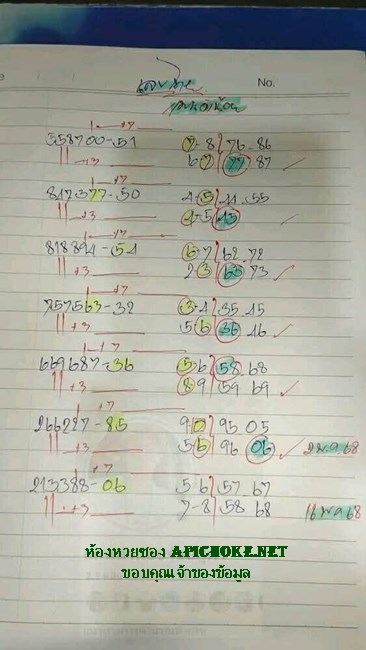 No.
+7
558700-51 7-8 76-86
+3 67 77 87
817377-50 4-5 44-55
+3 4-5 45
+7
818894-54 6-7 62-72
+3 2-3 63-73
+7
757563-32 3-4 35-45
+3 5 6 36 46
+7
669687-36 5-6 58-68
+3 8 9 59 69
+7
266227-85 9 0 95 05
+3 5 6 96 06 2 พ.ค 68
+7
213388-06 5-6 57-67
7-8 58 68 16 พ.ค 68
ห้องหวยซอง APICHOKE.NET
ขอบคุณเจ้าของข้อมูล